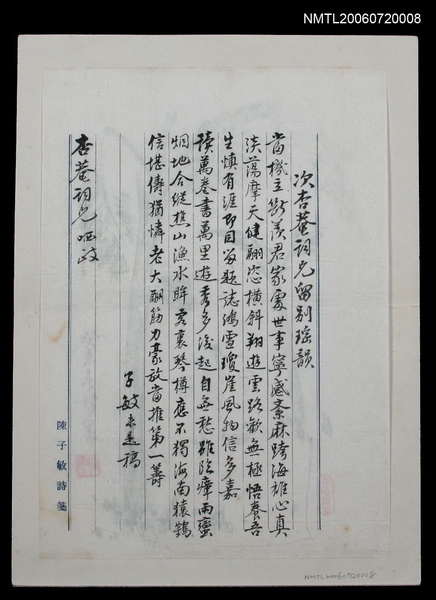 NMTL20060720008
次杏菴詞兄留別瑤韻
當機立斷羨君家處世事寧感紊麻跨海雄心真
淡蕩摩天健翮恣橫斜翔遊雲路歡無極悟養吾
生慎有涯即目留題誌鴻雪瓊崖風物信多嘉
讀萬卷書萬里遊秀多後起自無愁雖臨瘴雨蠻
烟地合縱樵山漁水眸客裏琴樽應不獨海南猿鶴
信堪儔猶憐老大酬筋力豪放當推第一籌
子敏未是稿
杏菴詞兄哂政
陳子敏詩箋
NMTL20060720008